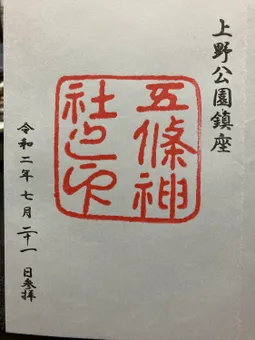 上野公園鎮座
五條神
社之印
令和二年七月二十一日参拝